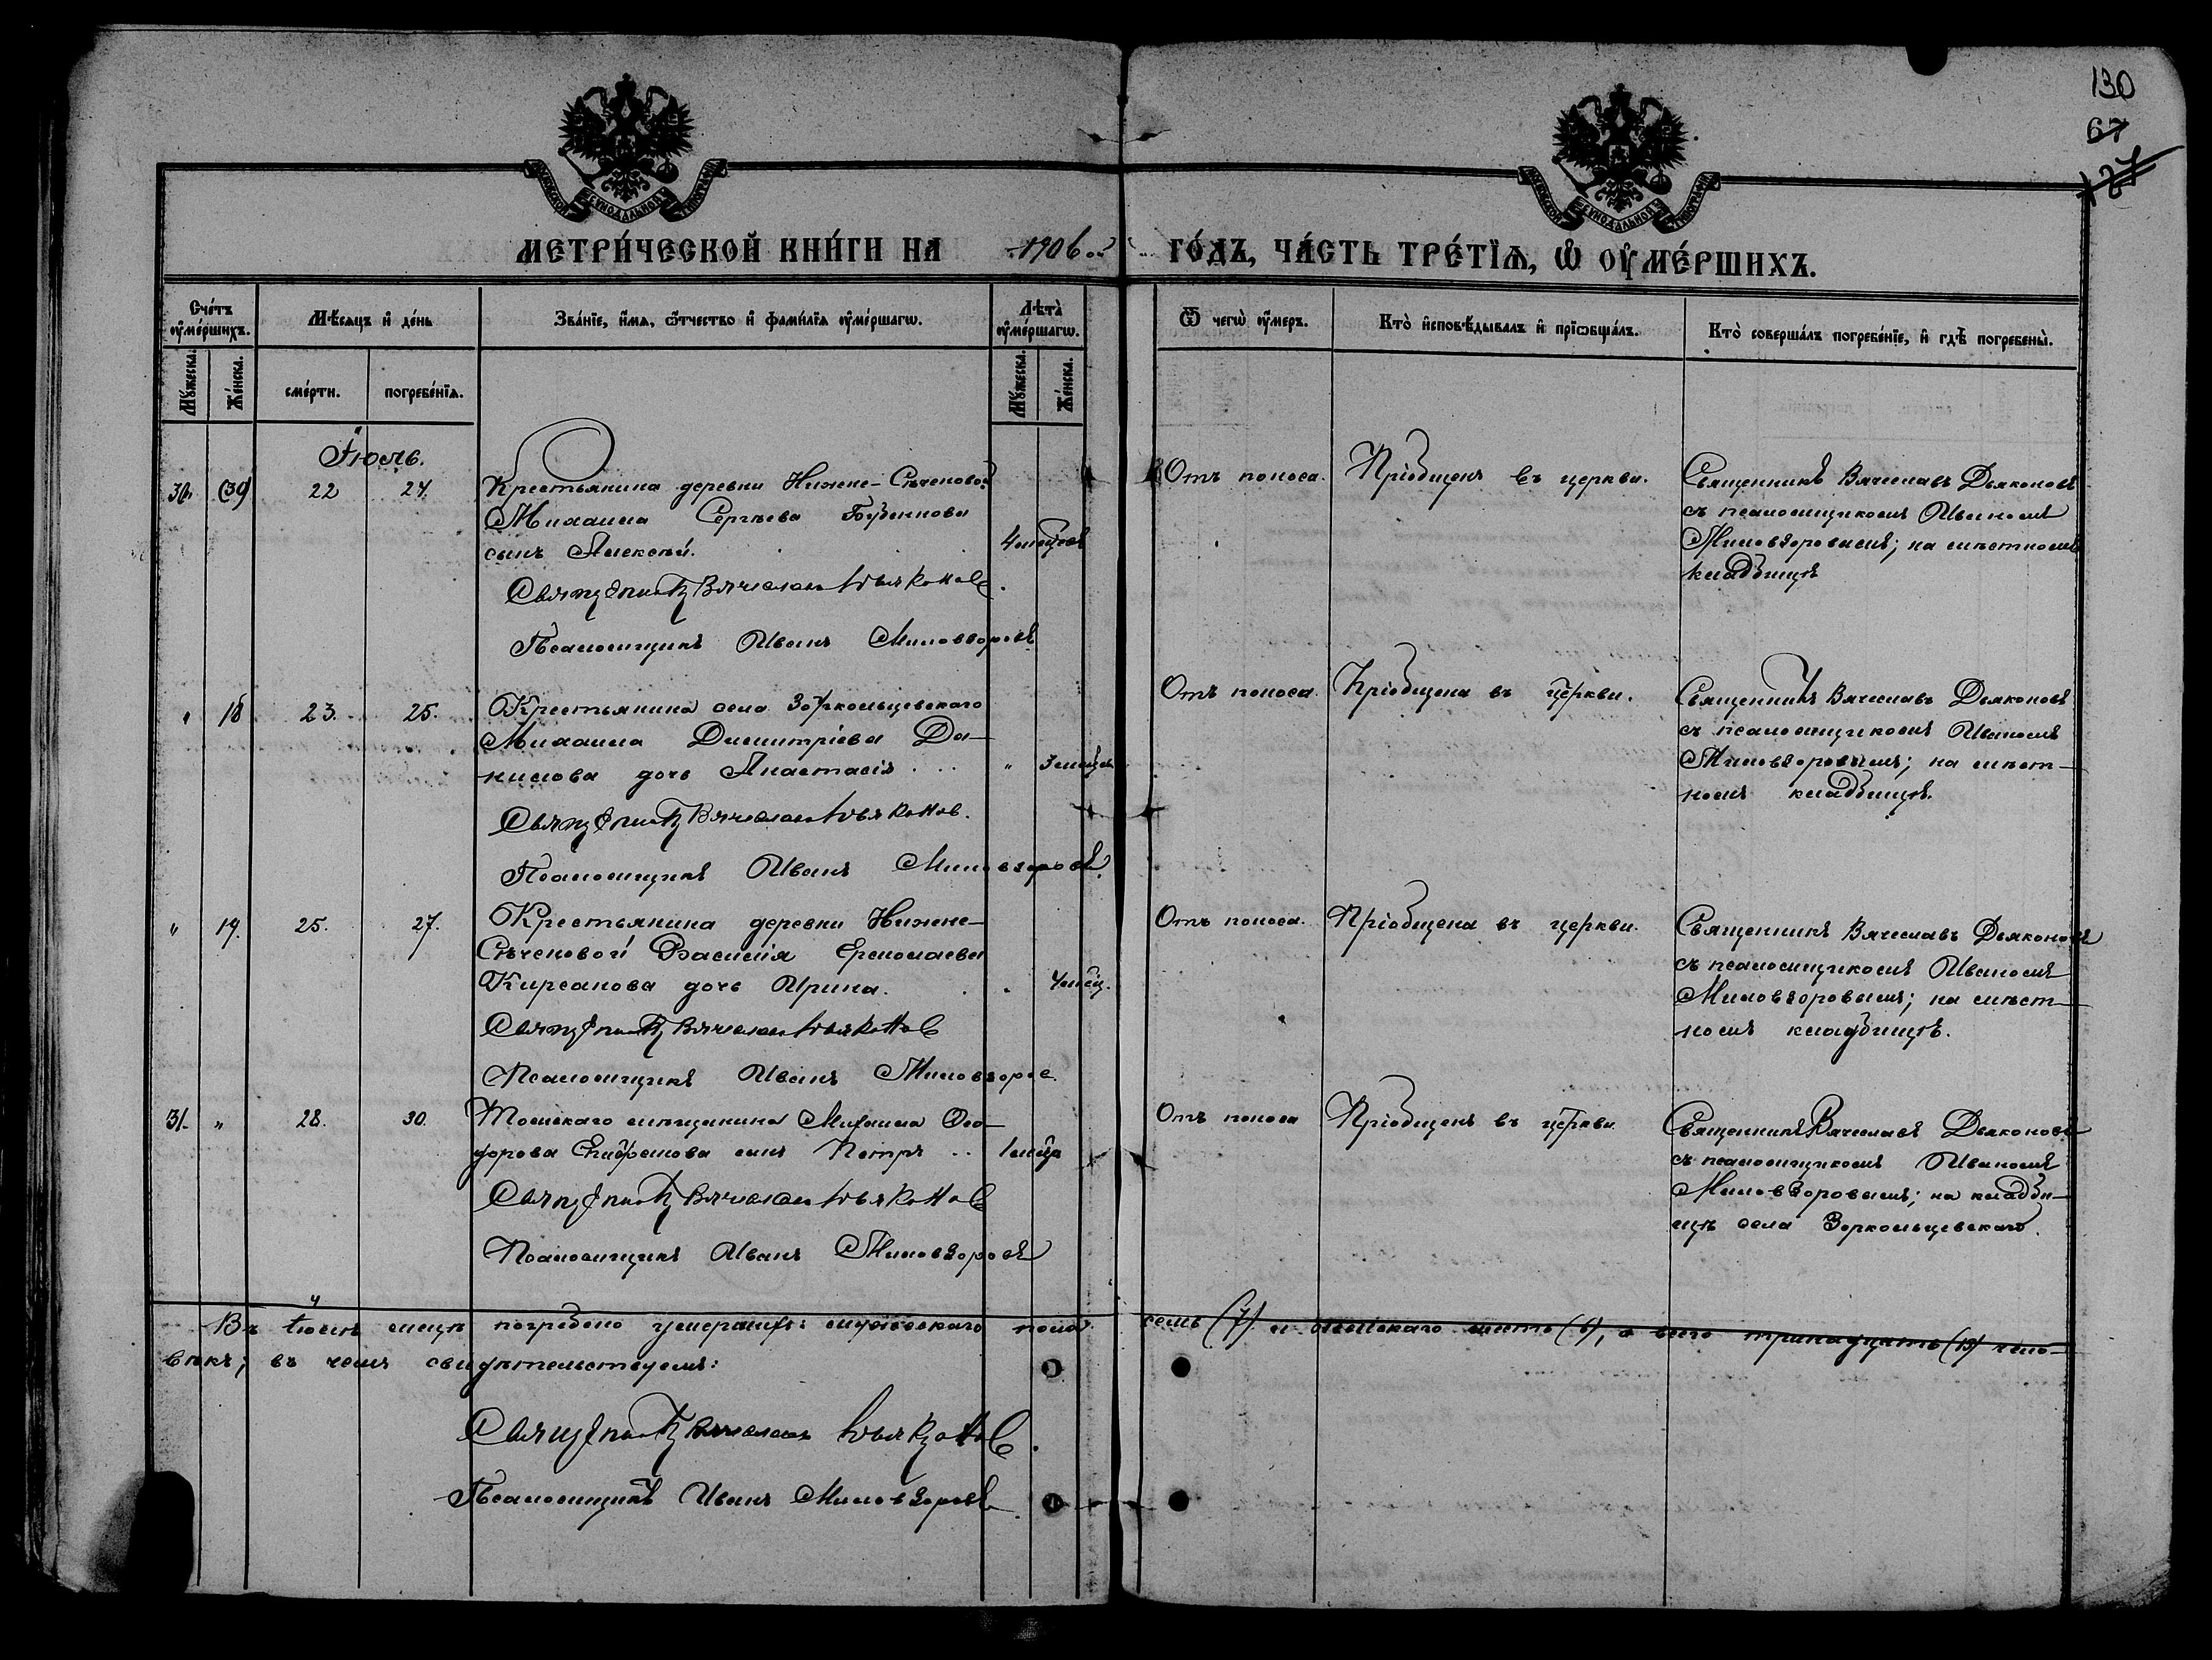 130
67
27
МОСКОВСКОЙ СѴНОДАЛЬНОЙ ТИПОГРАФІИ
МОСКОВСКОЙ СѴНОДАЛЬНОЙ ТИПОГРАФІИ
МЕТРИ́ЧЕСКОЙ КНИ́ГИ НА 1906 ГО́ДЪ, ЧА́СТЬ ТРЕ́ТЇѦ, Ѡ҆ ОУ҆МЕ́РШИХЪ.
Сче́тъ оу҆ме́ршихъ.
Мѣ́сяцъ и҆ де́нь
Зва́нїе, и҆́мя, ѻ҆́тчество и҆ фами́лїя оу҆ме́ршагѡ.
Лѣ́та оу҆ме́ршагѡ.
Ѿ чегѡ̀ оу҆́меръ.
Кто̀ и҆сповѣ́дывалъ и҆ прїѡбща́лъ.
Кто̀ соверша́лъ погребе́нїе, и҆ гдѣ̀ погребены̀.
Мꙋ́жеска.
Же́нска.
сме́рти.
погребе́нїя.
Мꙋ́жеска.
Же́нска.
Іюль.
30. (30) 22 24. Крестьянина деревни Нижне-Сѣченовой
Михаила Сергѣева
сынъ Алексѣй. 4 мѣсяцевъ
Священникъ Вячеславъ Дьяконовъ.
Псаломщикъ Иванъ Миловзоровъ
Отъ поноса. Пріобщенъ въ церкви. Священникъ Вячеславъ Дьяконовъ
съ псаломщикомъ Иваномъ
Миловзоровымъ; на мѣстномъ
кладбищѣ
" 18 23. 25. Крестьянина села Зоркольцевскаго
Михаила Димитріева Да-
нилова дочь Анастасія " 3 мѣсяц.
Священникъ Вячеславъ Дьяконов.
Псаломщикъ Иванъ Миловзоровъ.
Отъ поноса. Пріобщена въ церкви. Священникъ Вячеславъ Дьяконовъ
съ псаломщикомъ Иваномъ
Миловзоровымъ; на мѣст-
номъ кладбищѣ.
" 19. 25. 27. Крестьянина деревни Нижне-
Сѣченовой Василія Ермолаева
Кирсанова дочь Ирина. 4 мѣсяц.
Священникъ Вячеславъ Дьяконов
Псаломщикъ Иванъ Миловзоров.
Отъ поноса. Пріобщена въ церкви. Священникъ Вячеславъ Дьяконовъ
съ псаломщикомъ Иваномъ
Миловзоровымъ; на мѣст-
номъ кладбищѣ.
31. " 28. 30. Томскаго мѣщанина Михаила Ѳео-
дорова Епифанова сынъ Петръ 1 мѣсяц
Священникъ Вячеславъ Дьяконов
Псаломщикъ Иванъ Миловзоровъ
Отъ поноса Пріобщенъ въ церкви Священникъ Вячеславъ Дьяконовъ
съ псаломщикомъ Иваномъ
Миловзоровымъ; на кладби-
щѣ села Зоркольцевскаго.
Въ іюлѣ мѣсяцѣ погребено умершихъ: мужескаго пола семь (7) и женскаго шесть (6), а всего тринадцать (13) чело-
вѣкъ; въ чемъ свидѣтельствуемъ:
Священникъ Вячеславъ Дьяконов.
Псаломщикъ Иванъ Миловзоровъ.